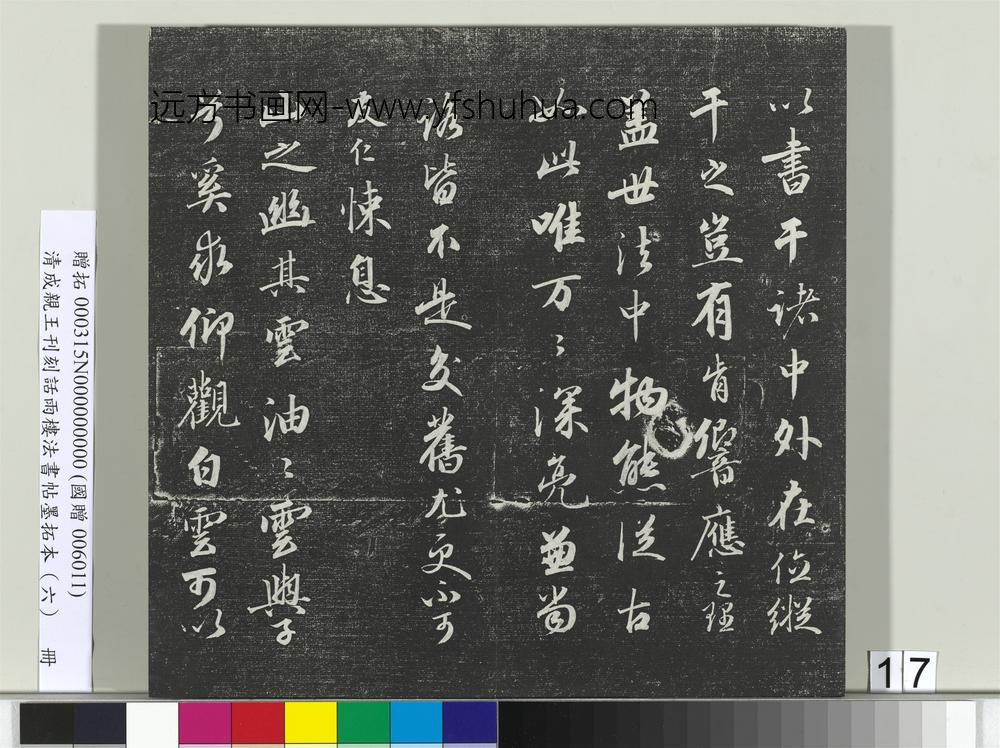 以書干諸中外在位縱
干之豈有肯響應之理
蓋世法中物態從古
如此唯万〻深亮並尚
皆不是交舊尤更不可
仁悚息
之幽其雲油〻雲與子
奚求仰觀白雲可以
远方书画网-www.yfshuhua.com
贈拓 000315N000000000 (國贈 006011)
清成親王刊刻話雨樓法書帖墨拓本（六） 冊
17